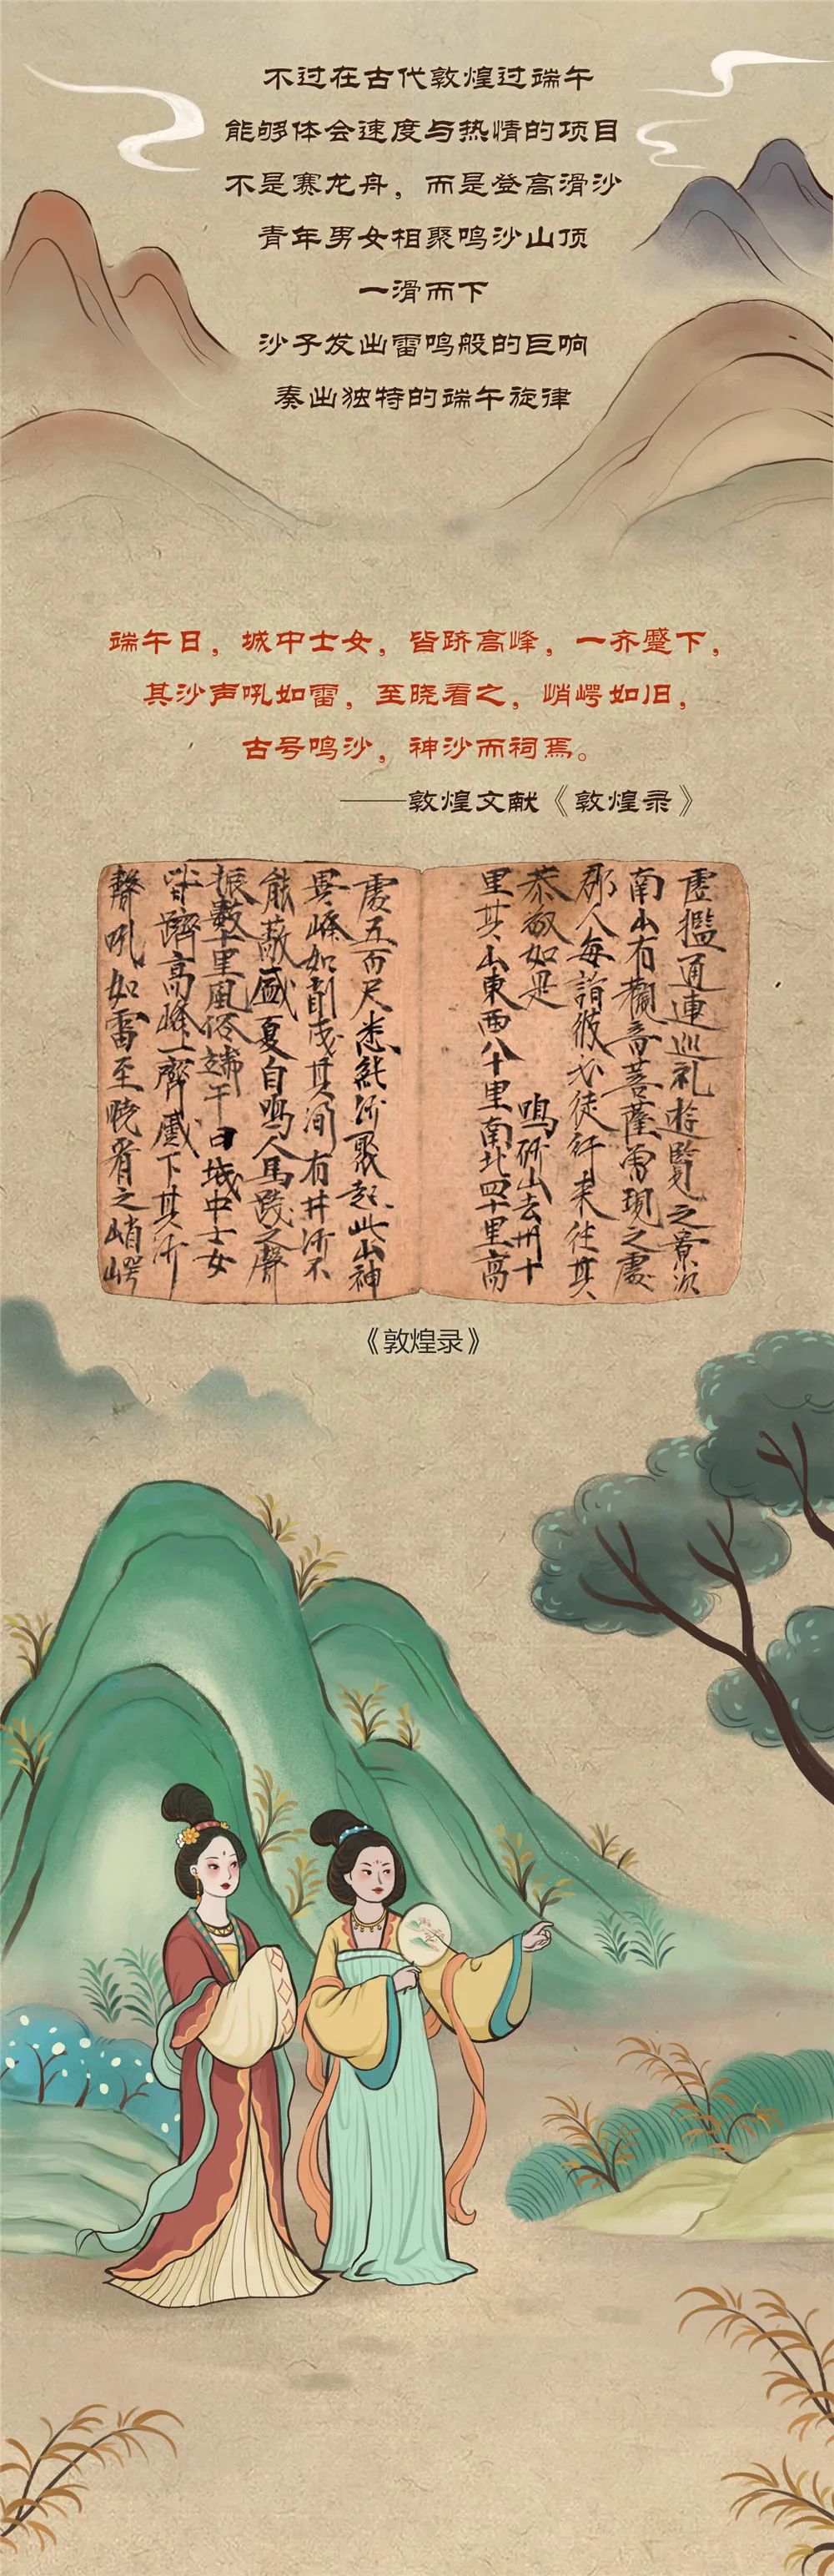 不过在古代敦煌过端午
能够体会速度与热情的项目
不是赛龙舟，而是登高滑沙
青年男女相聚鸣沙山顶
一滑而下
沙子发出雷鸣般的巨响
奏出独特的端午旋律
端午日，城中士女，皆跻高峰，一齐蹙下，
其沙声吼如雷，至晓看之，峭崿如旧，
古号鸣沙，神沙而祠焉。
——敦煌文献《敦煌录》
虚檻通連巡礼遊覧之景次
南山有觀音菩薩曽現之處
郡人毎詣彼必徒行来往其
恭敬如是 鳴沙山去州十
里其山東西八十里南北四十里高
處五百尺悉純沙聚起此山神
異峰如削成其間有井沙不
能蔽盛夏自鳴人馬践之聲
振數十里風俗端午日城中士女
皆躋高峰一齊蹙下其沙
聲吼如雷至曉看之峭崿
《敦煌录》